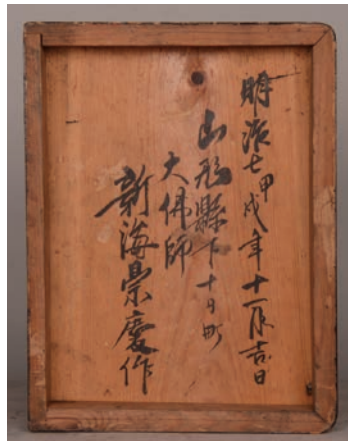 明治七甲戌年十一月吉日
山形縣下十日町
大佛師
新海宗慶作